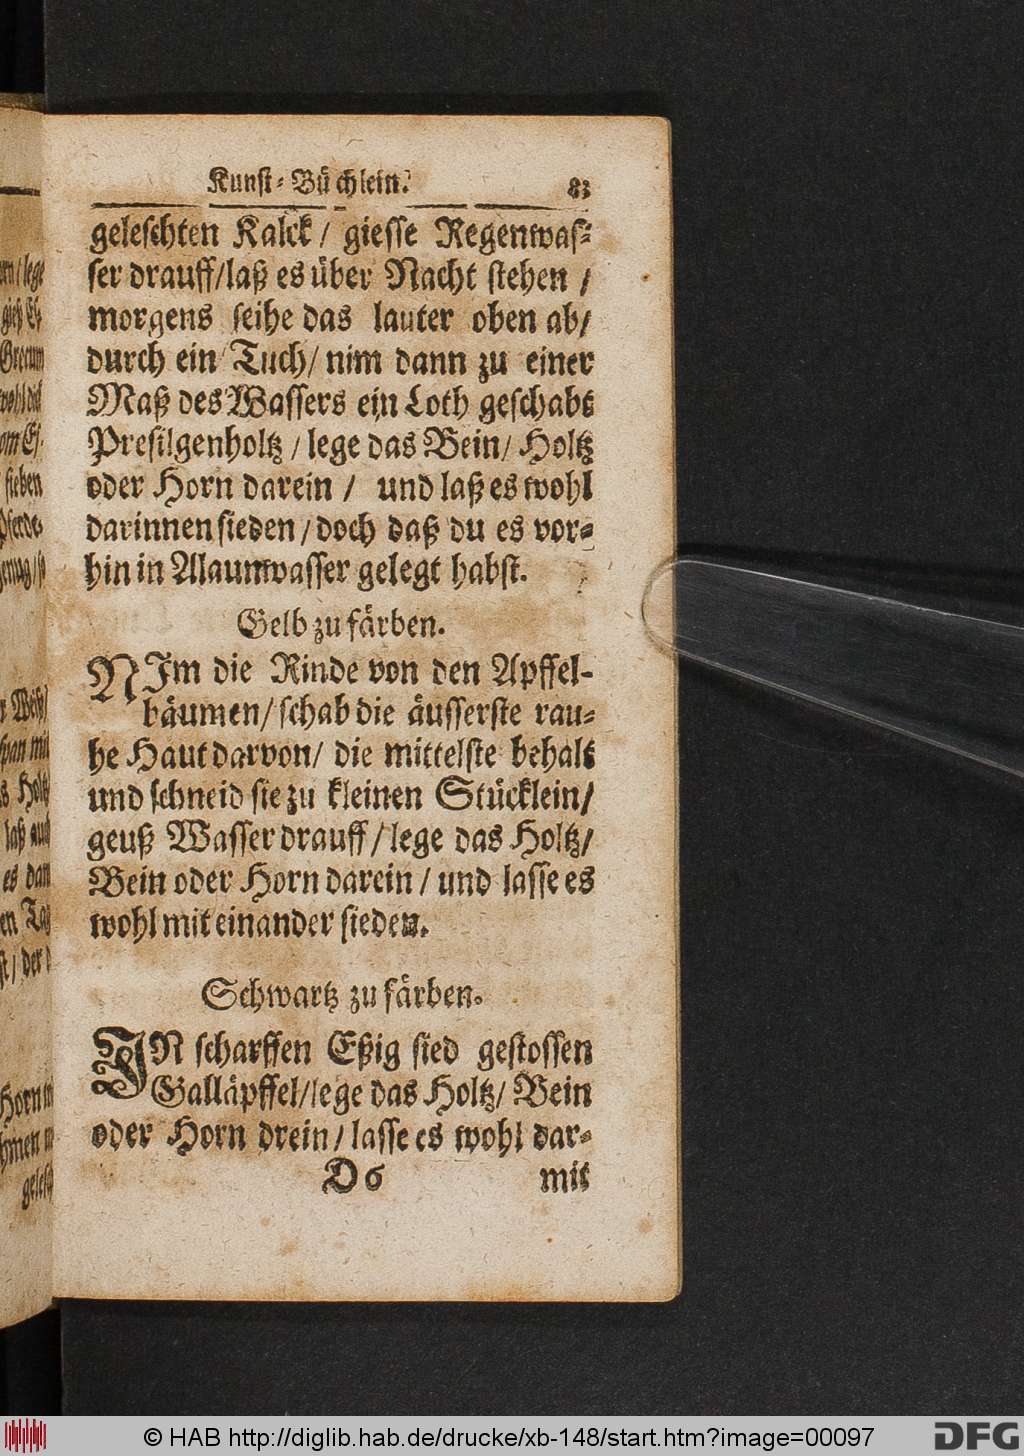 Kunst-Büchlein. 83
geleschten Kalck / giesse Regenwas-
ser drauff/laß es über Nacht stehen /
morgens seihe das lauter oben ab/
durch ein Tuch/ nim dann zu einer
Maß des Wassers ein Loth geschabt
Presilgenholtz / lege das Bein/ Holtz
oder Horn darein / und laß es wohl
darinnen sieden / doch daß du es vor-
hin in Alaunwasser gelegt habst.
Gelb zu färben.
NIm die Rinde von den Apffel-
bäumen/ schab die äusserste rau-
he Haut darvon/ die mittelste behalt
und schneid sie zu kleinen Stücklein/
geuß Wasser drauff / lege das Holtz/
Bein oder Horn darein / und lasse es
wohl mit einander sieden.
Schwartz zu färben.
IN scharffen Eßig sied gestossen
Galläpffel/lege das Holtz/ Bein
oder Horn drein / lasse es wohl dar-
D 6 mit
© HAB http://diglib.hab.de/drucke/xb-148/start.htm?image=00097
DFG